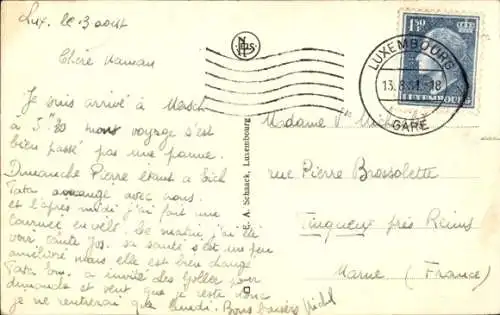 Lux. le 3 août
Chère Maman
Je suis arrivé à Mersch
à 5 mon voyage s'est
bien passé pas une panne.
Dimanche Pierre étant à Eich
Tata avec nous.
et l'après midi j'ai fait une
tournée en vélo. Ce matin j'ai été
voir tante Jos. sa santé s'est un peu
amélioré mais elle est bien changé
Tata Em. a invité des Goller pour
dimanche et veut que je reste donc
je ne rentrerai que lundi. Bons baisers Michel
E. A. Schaack, Luxembourg
1F50
LUXEMBOURG
LUXEMBOURG
13.8.51.-18
GARE
Madame
rue Pierre Brossolette
Tinqueux près Reims
Marne (France)